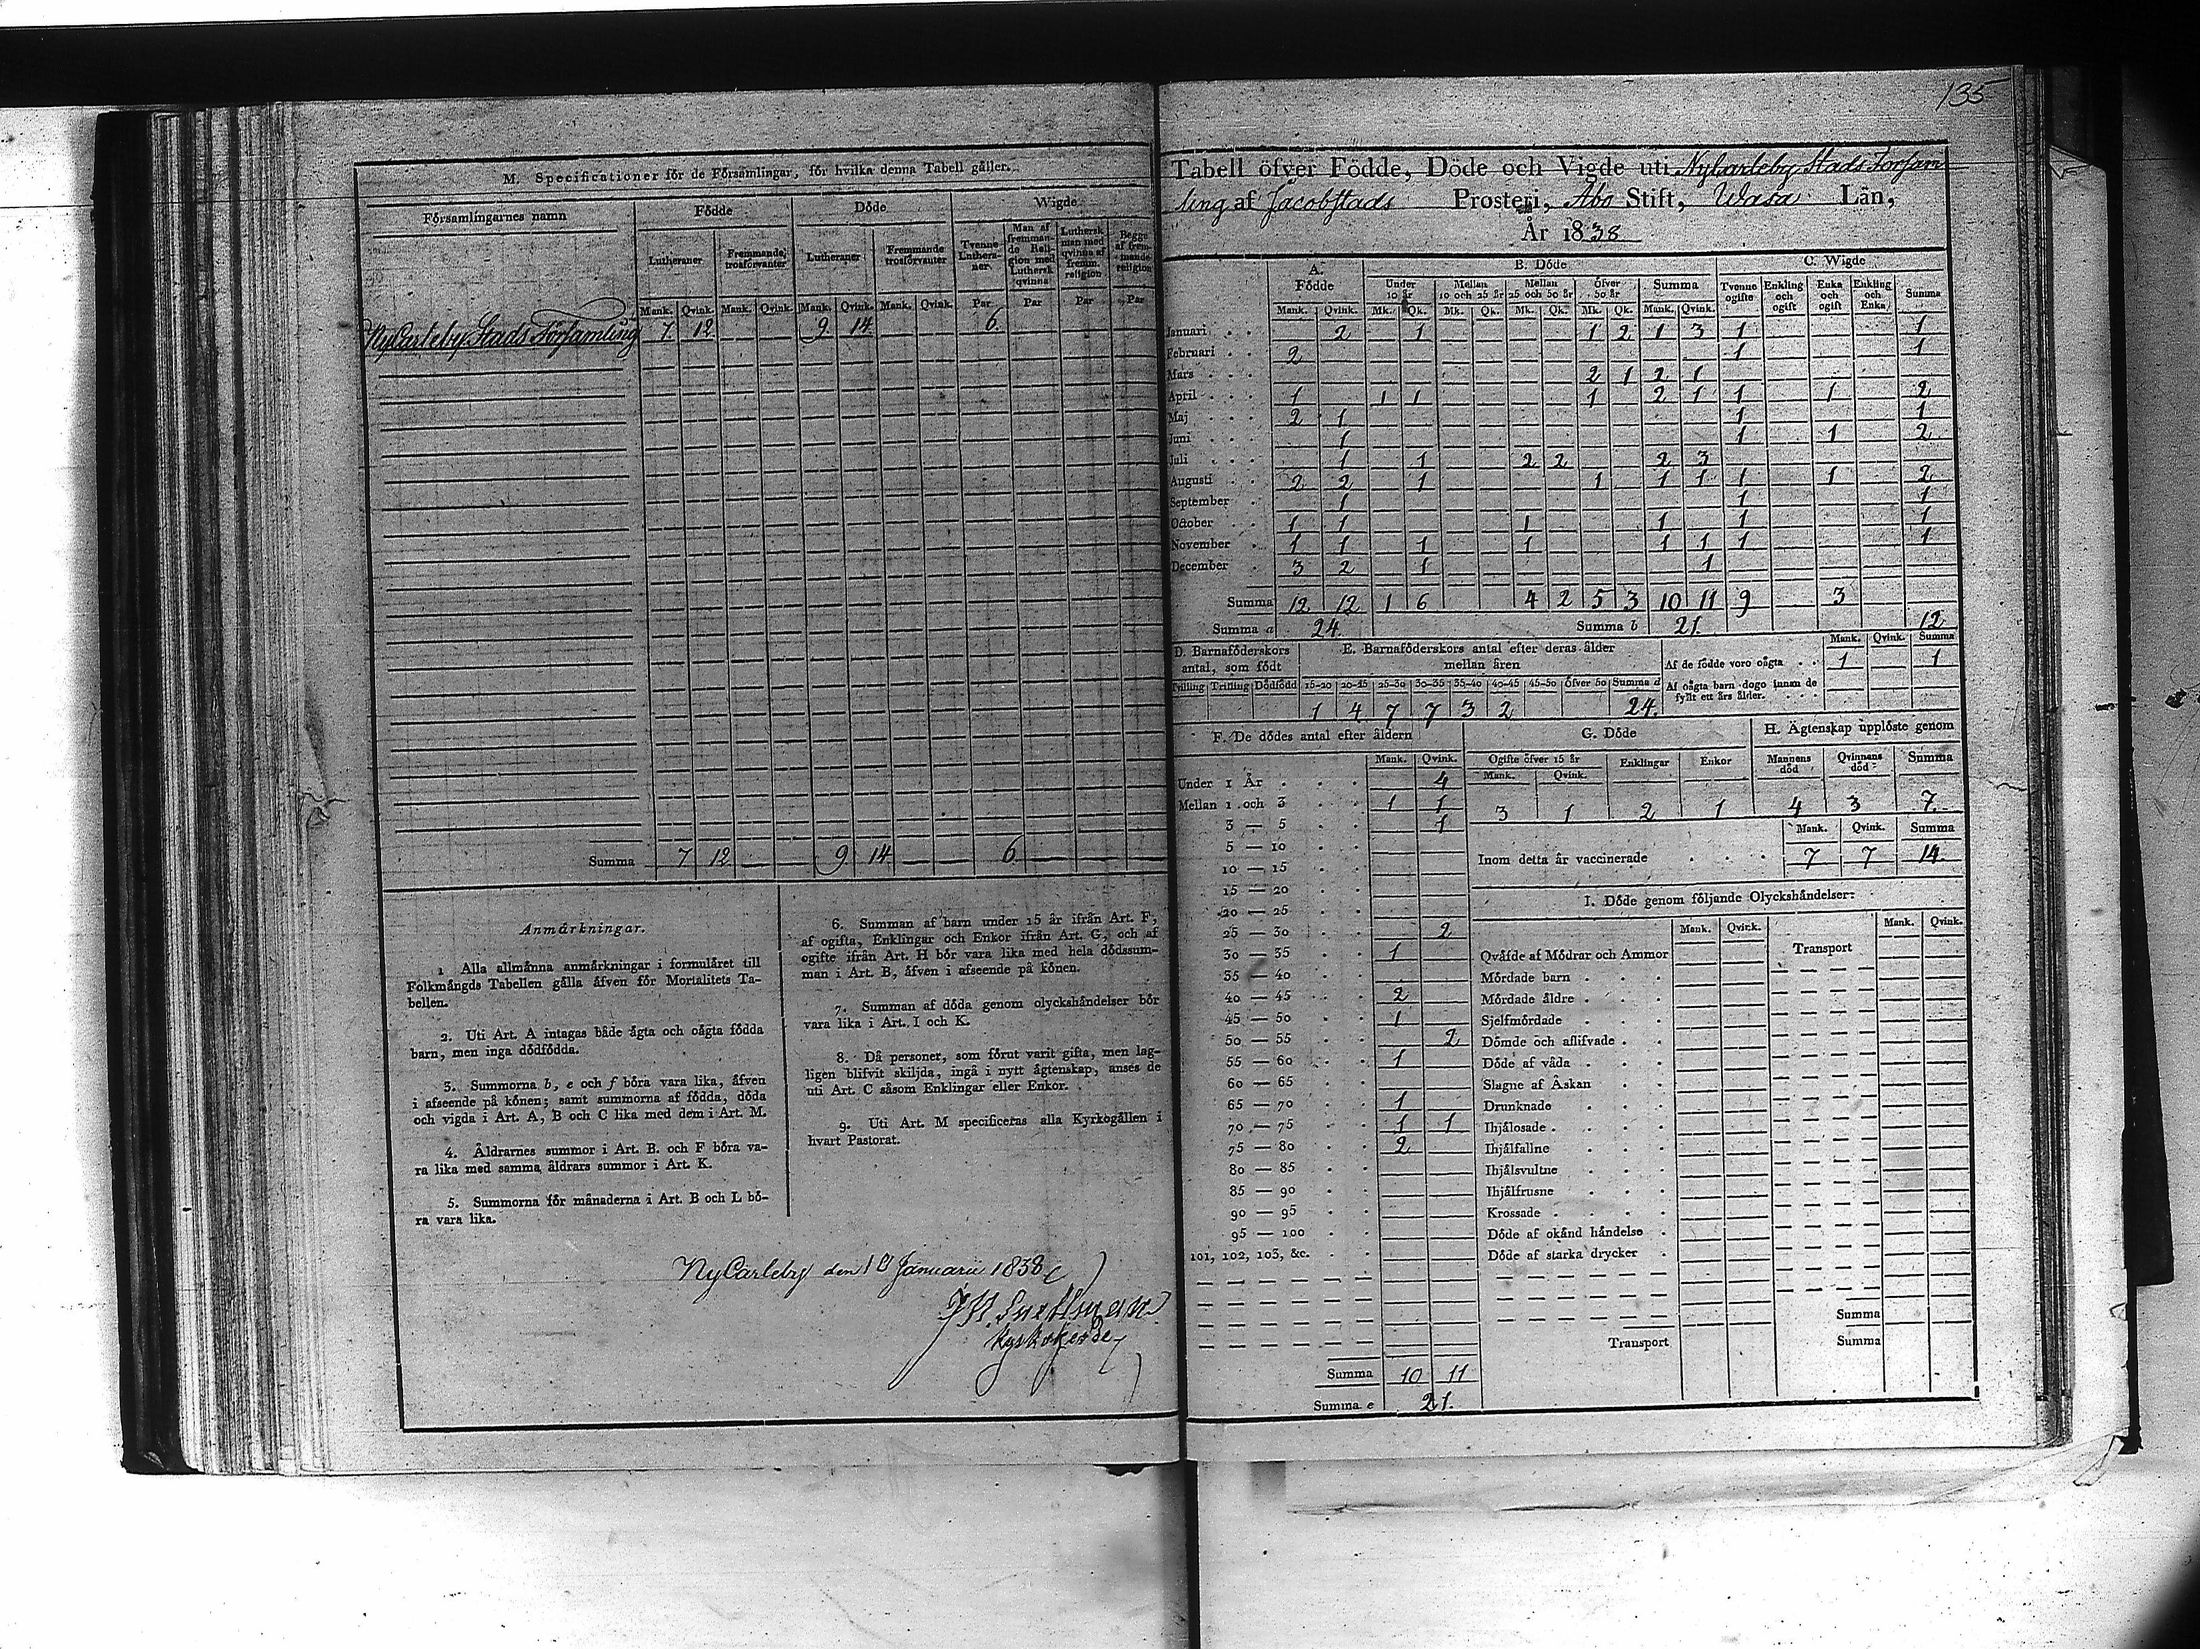 135
M. Specificationer för de Församlingar, för hvilka denna Tabell gäller.
Församlingarnes namn Födde Döde Wigde
Lutheraner Fremmande trosförvanter Lutheraner Fremmande trosförvanter Tvenne Lutheraner. Man af fremmande Religion med Luthersk qvinna Luthersk man med qvinna af fremm. religion Begge af fremmande religion
Mank. Qvink. Mank. Qvink. Mank. Qvink. Mank. Qvink. Par Par Par Par
NyCarleby Stads Församling 7 12 9 14 6
Summa 7 12 9 14 6
Anmärkningar.
1 Alla allmänna anmärkningar i formuläret till
Folkmängds Tabellen gälla äfven för Mortalitets Ta-
bellen.
2. Uti Art. A intagas både ägta och oägta födda
barn, men inga dödfödda.
3. Summorna b, e och f böra vara lika, äfven
i afseende på könen; samt summorna af födda, döda
och vigda i Art. A, B och C lika med dem i Art. M.
4. Åldrarnes summor i Art. B. och F böra va-
ra lika med samma åldrars summor i Art. K.
5. Summorna för månaderna i Art. B och L bö-
ra vara lika.
6. Summan af barn under 15 år ifrån Art. F,
af ogifta, Enklingar och Enkor ifrån Art. G, och af
ogifte ifrån Art. H bör vara lika med hela dödssum-
man i Art. B, äfven i afseende på könen.
7. Summan af döda genom olyckshändelser bör
vara lika i Art. I och K.
8. Då personer, som förut varit gifta, men lag-
ligen blifvit skiljda, ingå i nytt ägtenskap, anses de
uti Art. C såsom Enklingar eller Enkor.
9. Uti Art. M specificeras alla Kyrkogällen i
hvart Pastorat.
NyCarleby den Januarii 1838
Kyrkoherde
Tabell öfver Födde, Döde och Vigde uti NyCarleby Stads Församling
af Jacobstads Prosteri, Åbo Stift, Wasa Län,
År 1838
A. Födde B. Döde C. Wigde
Under 10 år Mellan 10 och 25 år Mellan 25 och 50 år Öfver 50 år Summa Tvenne ogifte Enkling och ogift Enka och ogift Enkling och Enka Summa
Mank. Qvink. Mk. Qk. Mk. Qk. Mk. Qk. Mk. Qk. Mank. Qvink.
Januari 2 1 1 2 1 3 1 1
Februari 2 1 1
Mars 2 1 2 1
April 1 1 1 1 2 1 1 1 2
Maj 2 1 1 1
Juni 1 1 1 2
Juli 1 1 2 2 2 3
Augusti 2 2 1 1 1 1 1 1 2
September 1 1 1
October 1 1 1 1 1 1
November 1 1 1 1 1 1 1 1
December 3 2 1 1
Summa 12 12 1 6 4 2 5 3 10 11 9 3
Summa a 24. Summa b 21. 12
D. Barnaföderskors antal, som födt
Tvilling Trilling Dödfödd
E. Barnaföderskors antal efter deras ålder mellan åren
15-20 20-25 25-30 30-35 35-40 40-45 45-50 Öfver 50 Summa d
1 4 7 7 3 2 24.
Mank. Qvink. Summa
Af de födde voro oägta 1 1
Af oägta barn dogo innan de fyllt ett års ålder.
F. De dödes antal efter åldern
Mank. Qvink.
Under 1 År 4
Mellan 1 och 3 1 1
3 — 5 1
5 — 10
10 — 15
15 — 20
20 — 25
25 — 30 2
30 — 35 1
35 — 40
40 — 45 2
45 — 50 1
50 — 55 2
55 — 60 1
60 — 65
65 — 70 1
70 — 75 1 1
75 — 80 2
80 — 85
85 — 90
90 — 95
95 — 100
101, 102, 103, &c.
Summa 10 11
Summa e 21.
G. Döde
Ogifte öfver 15 år Enklingar Enkor
Mank. Qvink.
3 1 2 1
H. Ägtenskap upplöste genom
Mannens död Qvinnans död Summa
4 3 7.
Mank. Qvink. Summa
Inom detta år vaccinerade 7 7 14.
I. Döde genom följande Olyckshändelser:
Mank. Qvink. Mank. Qvink.
Qväfde af Mödrar och Ammor Transport
Mördade barn
Mördade äldre
Sjelfmördade
Dömde och aflifvade
Döde af våda
Slagne af Åskan
Drunknade
Ihjälosade
Ihjälfallne
Ihjälsvultne
Ihjälfrusne
Krossade
Döde af okänd händelse
Döde af starka drycker
Summa
Transport Summa